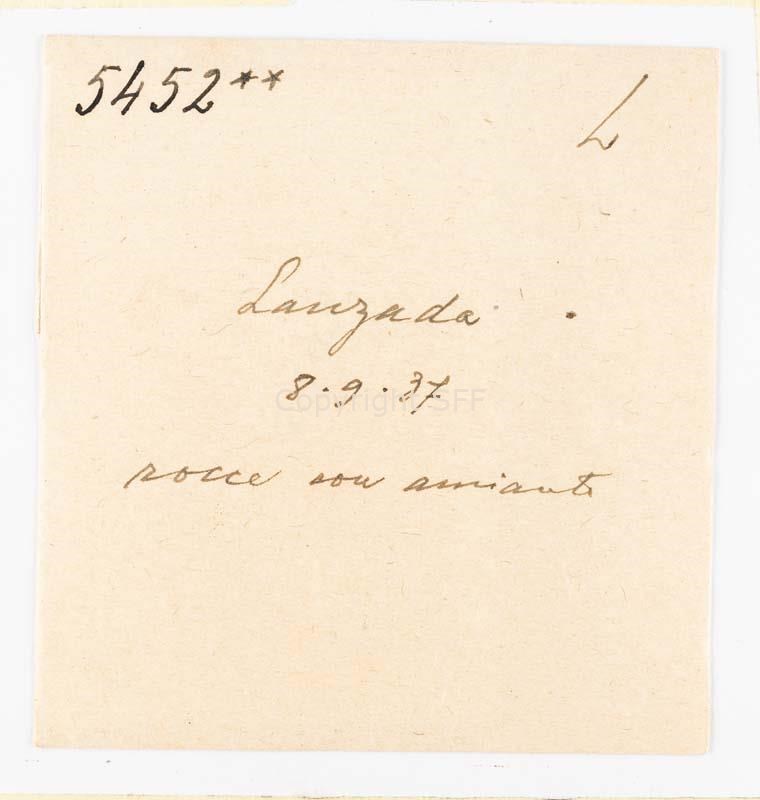 5452**
L
Lanzada .
8.9.37
Copyright SFF
rocce con amianto